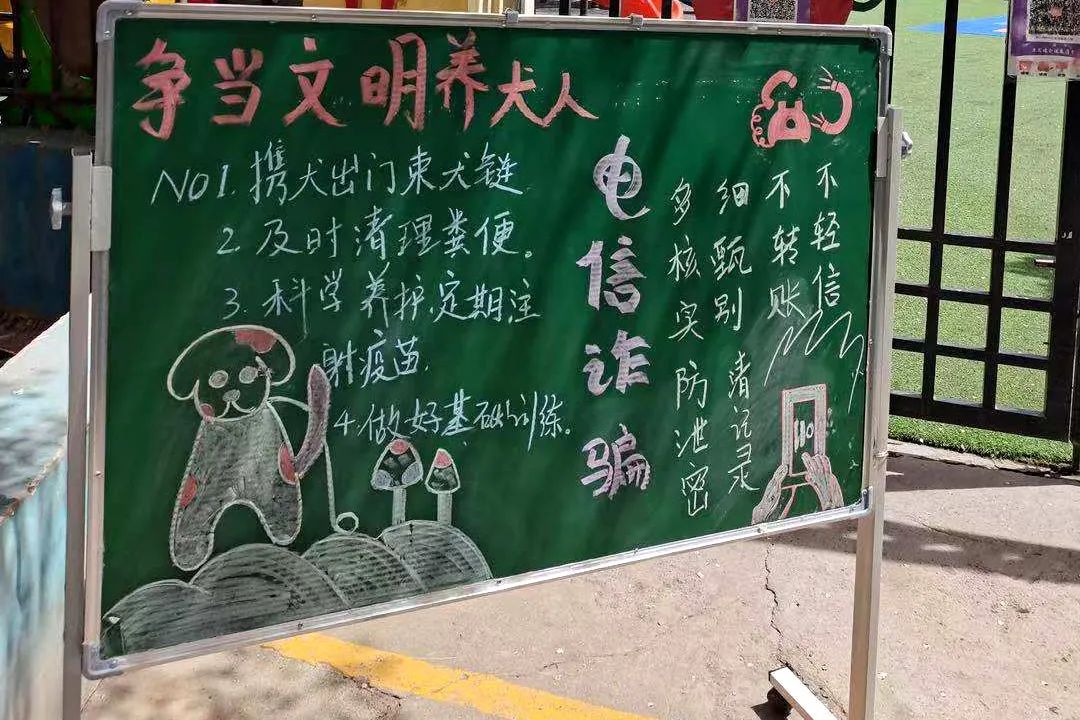 争当文明养犬人
NO1. 携犬出门束犬链
2. 及时清理粪便。
3. 科学养护,定期注
射疫苗.
4.做好基础训练。
电信诈骗
不轻信
不转账
细甄别 清记录
多核实 防泄密
110